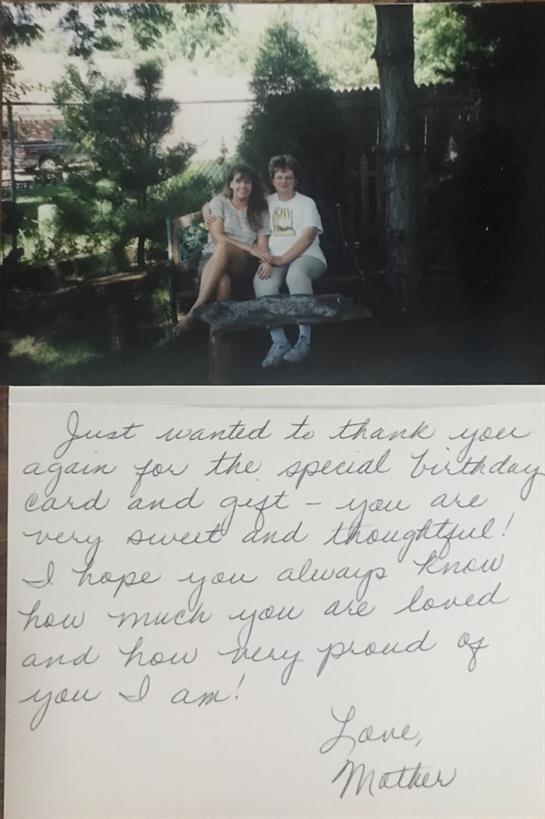 Just wanted to thank you
again for the special birthday
card and gift – you are
very sweet and thoughtful!
I hope you always know
how much you are loved
and how very proud of
you I am!
Love,
Mother